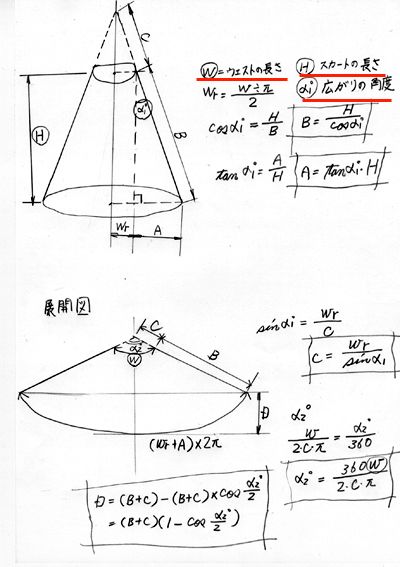 C
H
α₁°
B
Wr
A
W=ウエストの長さ
H スカートの長さ
α₁° 広がりの角度
Wr = W÷π / 2
cosα₁° = H / B
B = H / cosα₁°
tanα₁° = A / H
A = tanα₁°・H
展開図
C
α₂
W
B
D
(Wr+A)×2π
sinα₁° = Wr / C
C = Wr / sinα₁
α₂°
W / 2・C・π = α₂° / 360
α₂° = 360(W) / 2・C・π
D = (B+C)-(B+C)×cos α₂° / 2
= (B+C)(1-cos α₂° / 2)